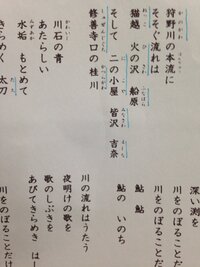 狩野川の本流に
そそぐ流れは
猫越 火の沢 船原
そして 二の小屋 皆沢 吉奈
修善寺口の桂川
川石の青
あたらしい
水垢 もとめて
きらめく 太刀
深い淵を
川をのぼる
川をのぼることだ
鮎 鮎
鮎の いのち
川の流れはうたう
夜明けの歌を
歌のしぶきを
あびてきらめき は
川をのぼることだけ